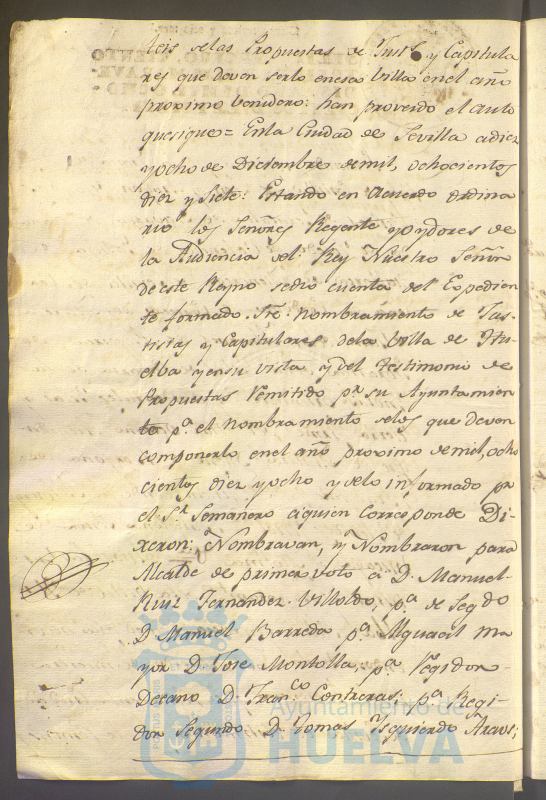 teis de las Propuestas de Just.s y Capitula
res que deven serlo en esa Villa en el año
proximo venidero: han proveido el auto
que sigue = En la Ciudad de Sevilla a diez
y ocho de Diciembre de mil, ochocientos
diez y siete: Estando en Acuerdo ordina
rio los Señores Regente y oydores de
la Audiencia del Rey Nuestro Señor
de este Reyno se dio cuenta del Expedien
te formado sre. nombramiento de Jus-
ticias y Capitulares de la Villa de Hu
elba y en su vista y del testimonio de
Propuestas remitido p.r su Ayuntamien
to p.a el nombramiento de los que deven
componerlo en el año proximo de mil, ocho
cientos diez y ocho y de lo informado pr
el S.r Semanero a quien corresponde Di-
xeron: Nombravan, y Nombraron para
Alcalde de primer voto a D. Manuel
Ruiz Fernandez Villoldo; p.a de Seg.do
D. Manuel Barreda p.a Alguacil ma
yor D. Jose Montolla; p.a Regidor
Decano D. Fran.co Contreras; p.a Regi
dor Segundo D. Tomas Izquierdo Araus;
Ayuntamiento de
HUELVA